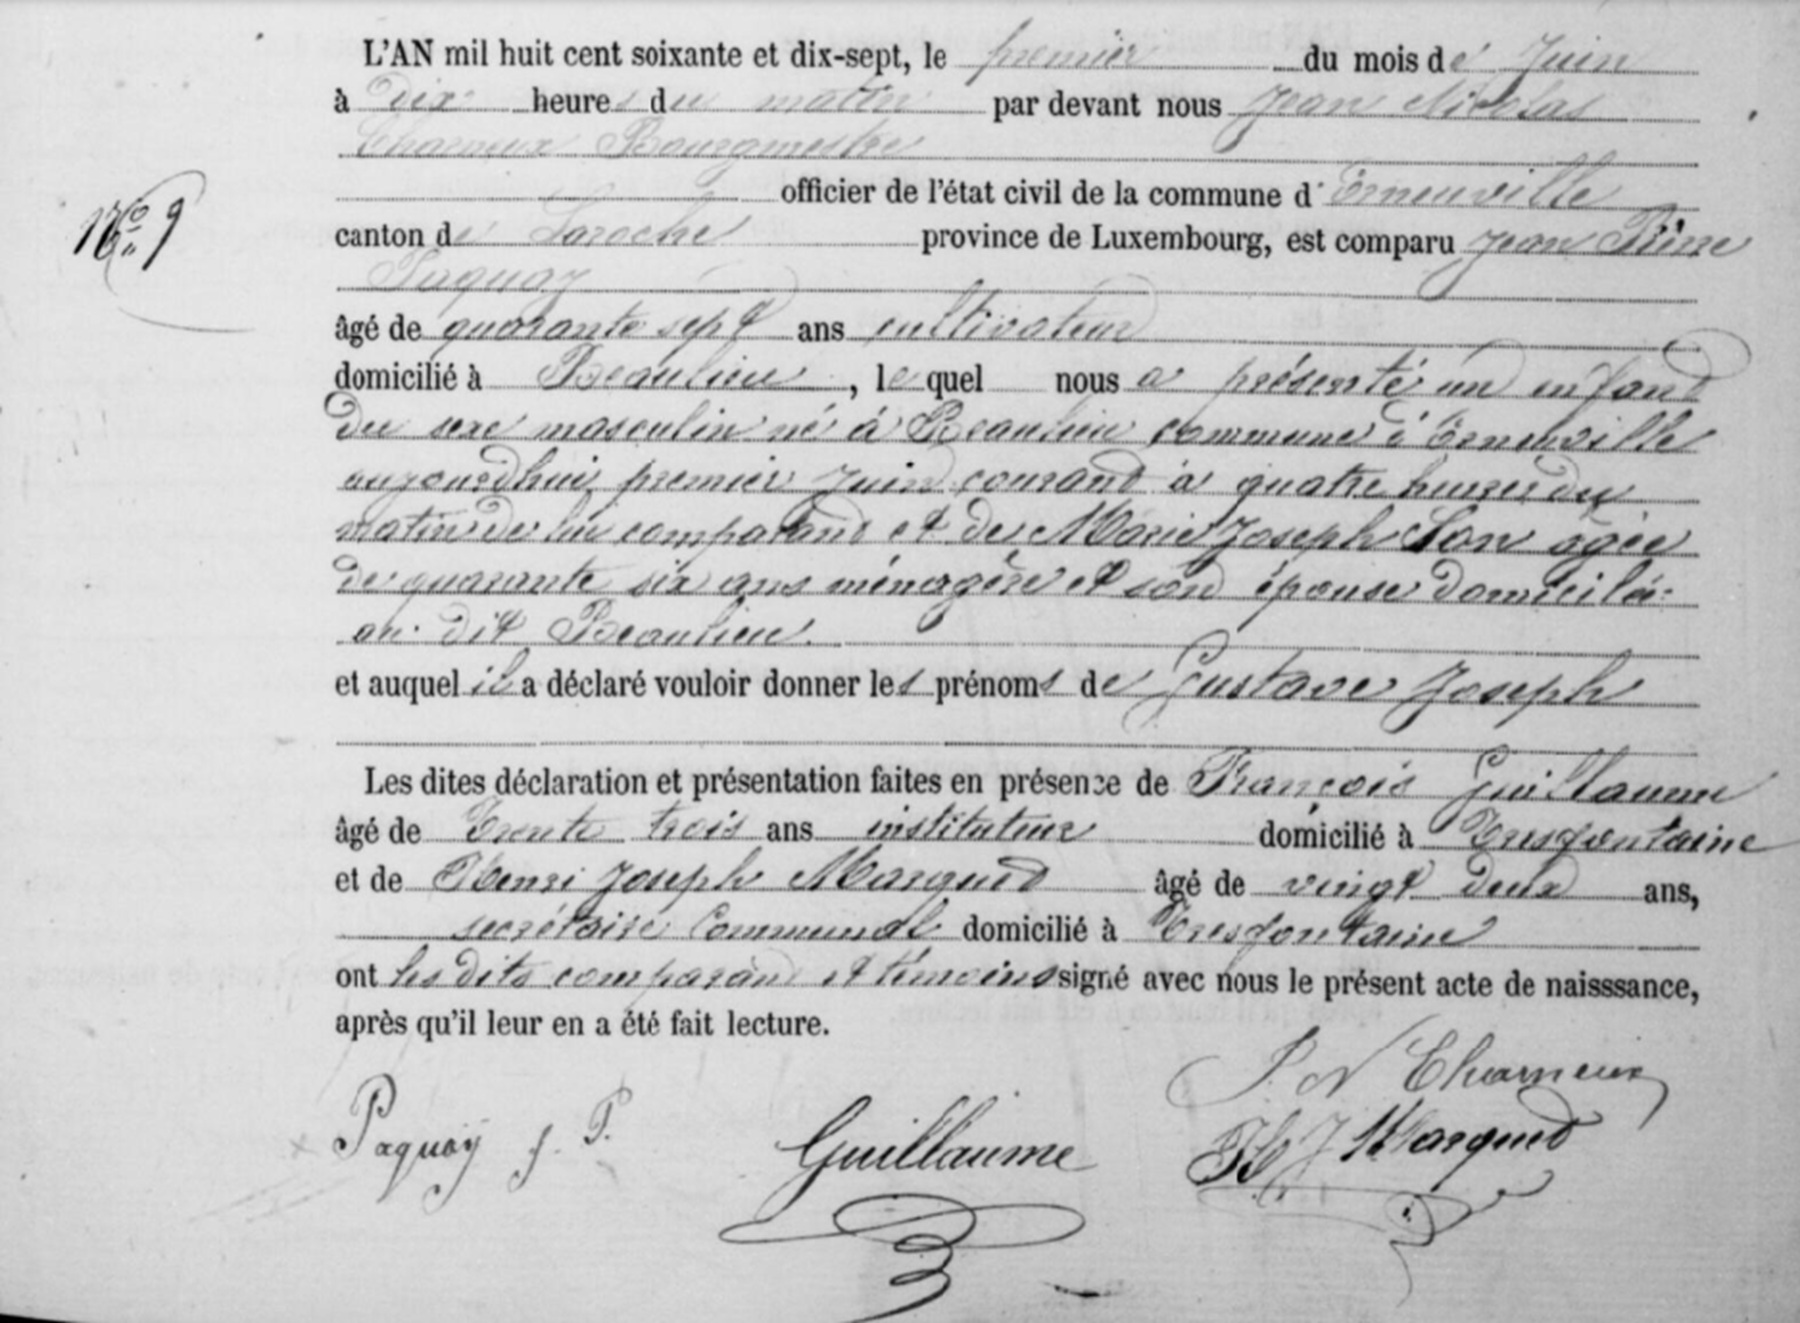 L'AN mil huit cent soixante et dix-sept, le premier du mois de Juin
à dix heures du matin par devant nous Jean Nicolas
Charneux Bourgmestre
officier de l'état civil de la commune d' Erneuville
No 9
canton de Laroche province de Luxembourg, est comparu Jean Pierre
Paquay
âgé de quarante sept ans cultivateur
domicilié à Beaulieu, lequel nous a présenté un enfant
du sexe masculin né à Beaulieu commune d'Erneuville
aujourdhui premier Juin courant à quatre heures du
matin de lui comparant et de Marie Joseph Son agée
de quarante six ans ménagère et son épouse domicilié
au dit Beaulieu.
et auquel il a déclaré vouloir donner les prénoms de Gustave Joseph
Les dites déclaration et présentation faites en présence de François Guillaume
âgé de Trente trois ans instituteur domicilié à Tresfontaine
et de Henri Joseph Marquet âgé de vingt deux ans,
secrétaire Communal domicilié à Tresfontaine
ont les dits comparant et témoins signé avec nous le présent acte de naisssance,
après qu'il leur en a été fait lecture.
J. N Charneux
Paquay J. P. Guillaume H J Marquet